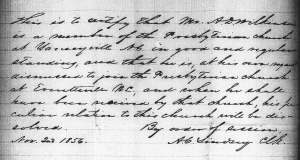 This is to certify that Mr. A D Wilkinson
is a member of the Presbyterian church
at and regular
standing, and that he is, at his own request
dismissed to join the Presbyterian church
at N.C. and when he shall
have been received by that church, his pe
culiar relation to this church will be dis
solved. By order of session
Nov. 23d 1856. A C Lindsey Clk.